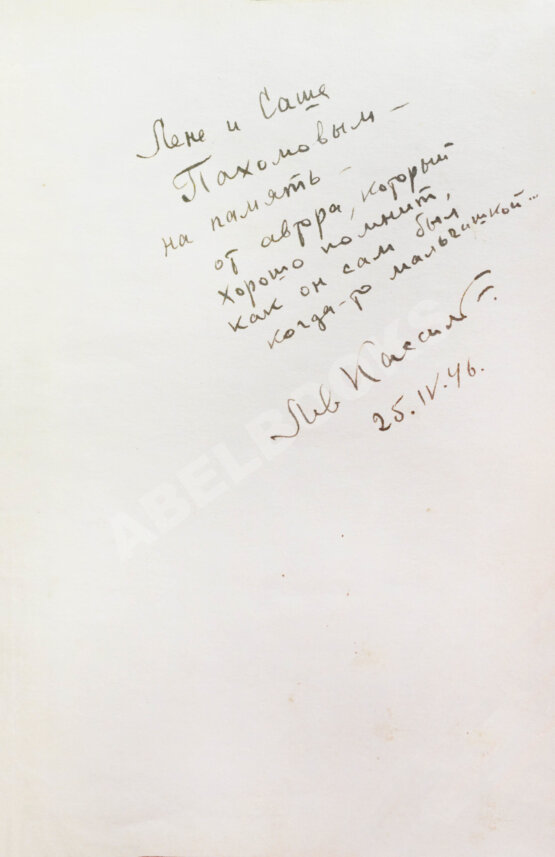 Лене и Саше
Пахомовым —
на память —
от автора, который
хорошо помнит,
как он сам был
когда-то мальчишкой...
Лев Кассиль.
25.IV.46.
ABELBOOKS